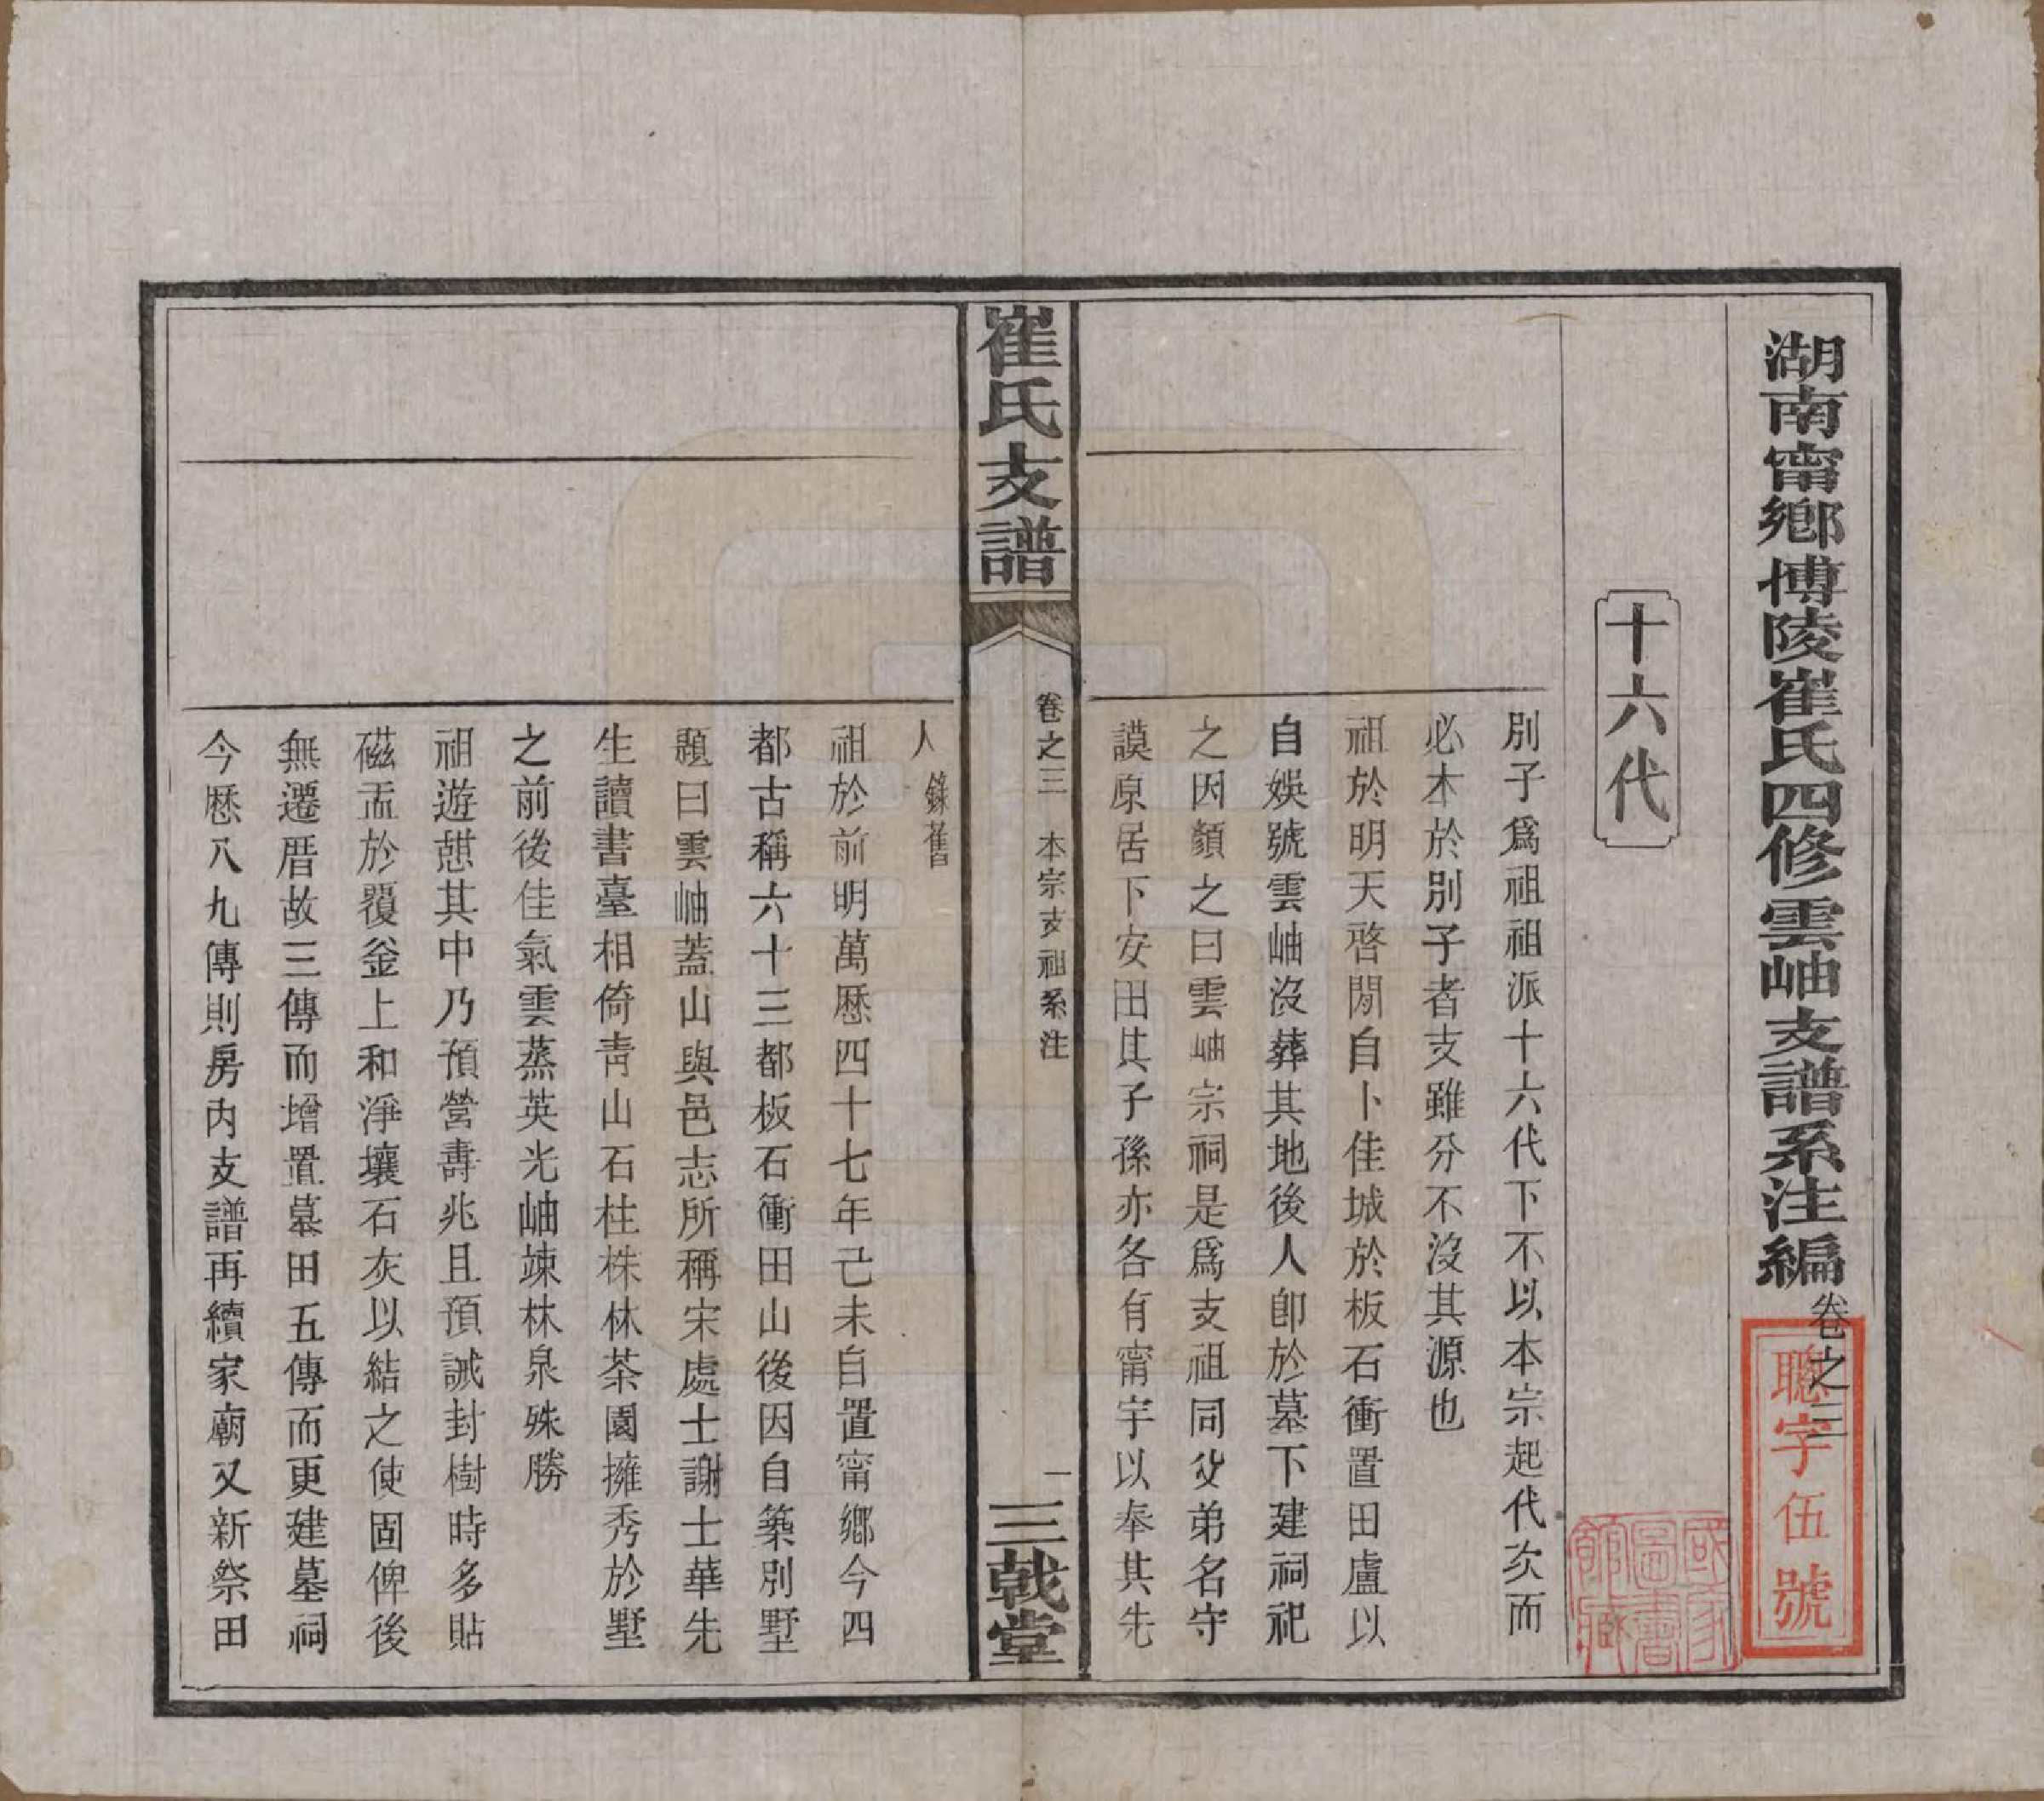 湖南甯鄉博陵崔氏四修雲岫支譜系注編卷之三
聰字伍號
國家圖書館藏
十六代
別子爲祖祖派十六代下不以本宗起代次而
必本於別子者支雖分不沒其源也
祖於明天啓閒自卜佳城於板石衝置田盧以
自娛號雲岫沒葬其地後人卽於墓下建祠祀
之因顏之曰雲岫宗祠是爲支祖同父弟名守
謨原居下安田其子孫亦各有甯宇以奉其先
崔氏支譜
卷之三 本宗支祖系注
一
三戟堂
人 錄舊
祖於前明萬厯四十七年己未自置甯鄉今四
都古稱六十三都板石衝田山後因自築別墅
題曰雲岫蓋山與邑志所稱宋處士謝士華先
生讀書臺相倚靑山石柱株林茶園擁秀於墅
之前後佳氣雲蒸英光岫竦林泉殊勝
祖遊憇其中乃預營壽兆且預誡封樹時多貼
磁盂於覆釜上和淨壤石灰以結之使固俾後
無遷厝故三傳而增置墓田五傳而更建墓祠
今厯八九傳則房内支譜再續家廟又新祭田